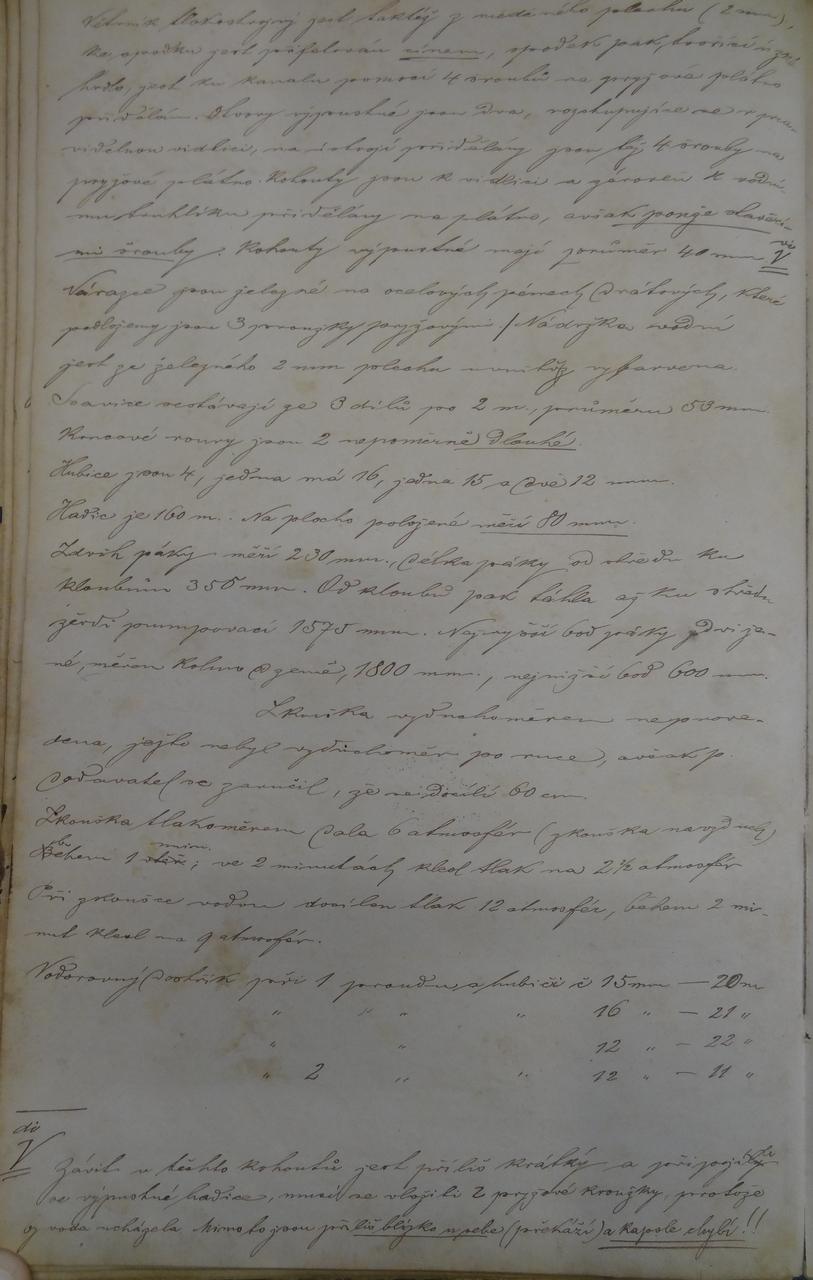 Větrník tlakostrojný jest taktéž z měděného plechu (2 mm),
ke spodku jest přiletován cínem, spodek pak, tvořící úzké
hrdlo, jest ku kanálu pomocí 4 šroubů na pryžové plátno
přidělán. Otvory výpustné jsou dva, rozstupujíce se v pra-
videlnou vidlici, na i stroji přidělány jsou téj 4 šrouby na
pryžové plátno. Kohouty jsou k vidlici a zároveň k vodní-
mu truhlíku přidělány na plátno, avšak pouze stavěcí-
mi šrouby. Kohouty výpustné mají průměr 40 mm V
Nárazce jsou železné na ocelových pérech drátových, které
podloženy jsou 3 proužky pryžovými. / Nádržka vodní
jest ze železného 2 mm plechu uvnitř vybarvena.
Ssavice sestávají ze 3 dílů po 2 m., průměru 53 mm.
Koncové roury jsou 2 nepoměrně dlouhé.
Hubice jsou 4, jedna má 16, jedna 15 a dvě 12 mm.
Hadic je 160 m. Na plocho položené měří 80 mm.
Zdvih páky měří 230 mm., délka páky od středu ku
kloubům 350 mm. Od kloubů pak táhla až ku středu
žerdi pumpovací 1575 mm. Nejvyšší bod páky zdviže-
né, měřen kolmo od země, 1800 mm., nejnižší bod 600 mm.
Zkouška vzduchoměrem neprove-
dena, ježto nebyl vzduchoměr po ruce, avšak p.
dodavatel se zaručil, že se docílí 60 cm.
Zkouška tlakoměrem dala 6 atmosfér (zkouška na vzduch)
Během 1 min.; ve 2 minutách klesl tlak na 2½ atmosfér
Při zkoušce vodou docílen tlak 12 atmosfér, během 2 mi-
nut klesl na 9 atmosfér.
Vodorovný dostřik při 1 proudu a hubici č 15 mm — 20 m
" " " " 16 " — 21 "
" " 12 " — 22 "
" 2 " " 12 " — 11 "
dio
V Závit u těchto kohoutů jest příliš krátký a připojí-li
se výpustné hadice, musí se vložiti 2 pryžové kroužky, protože
by voda ucházela. Mimo to jsou příliš blízko u sebe (překáží) a kapsle chybí!!